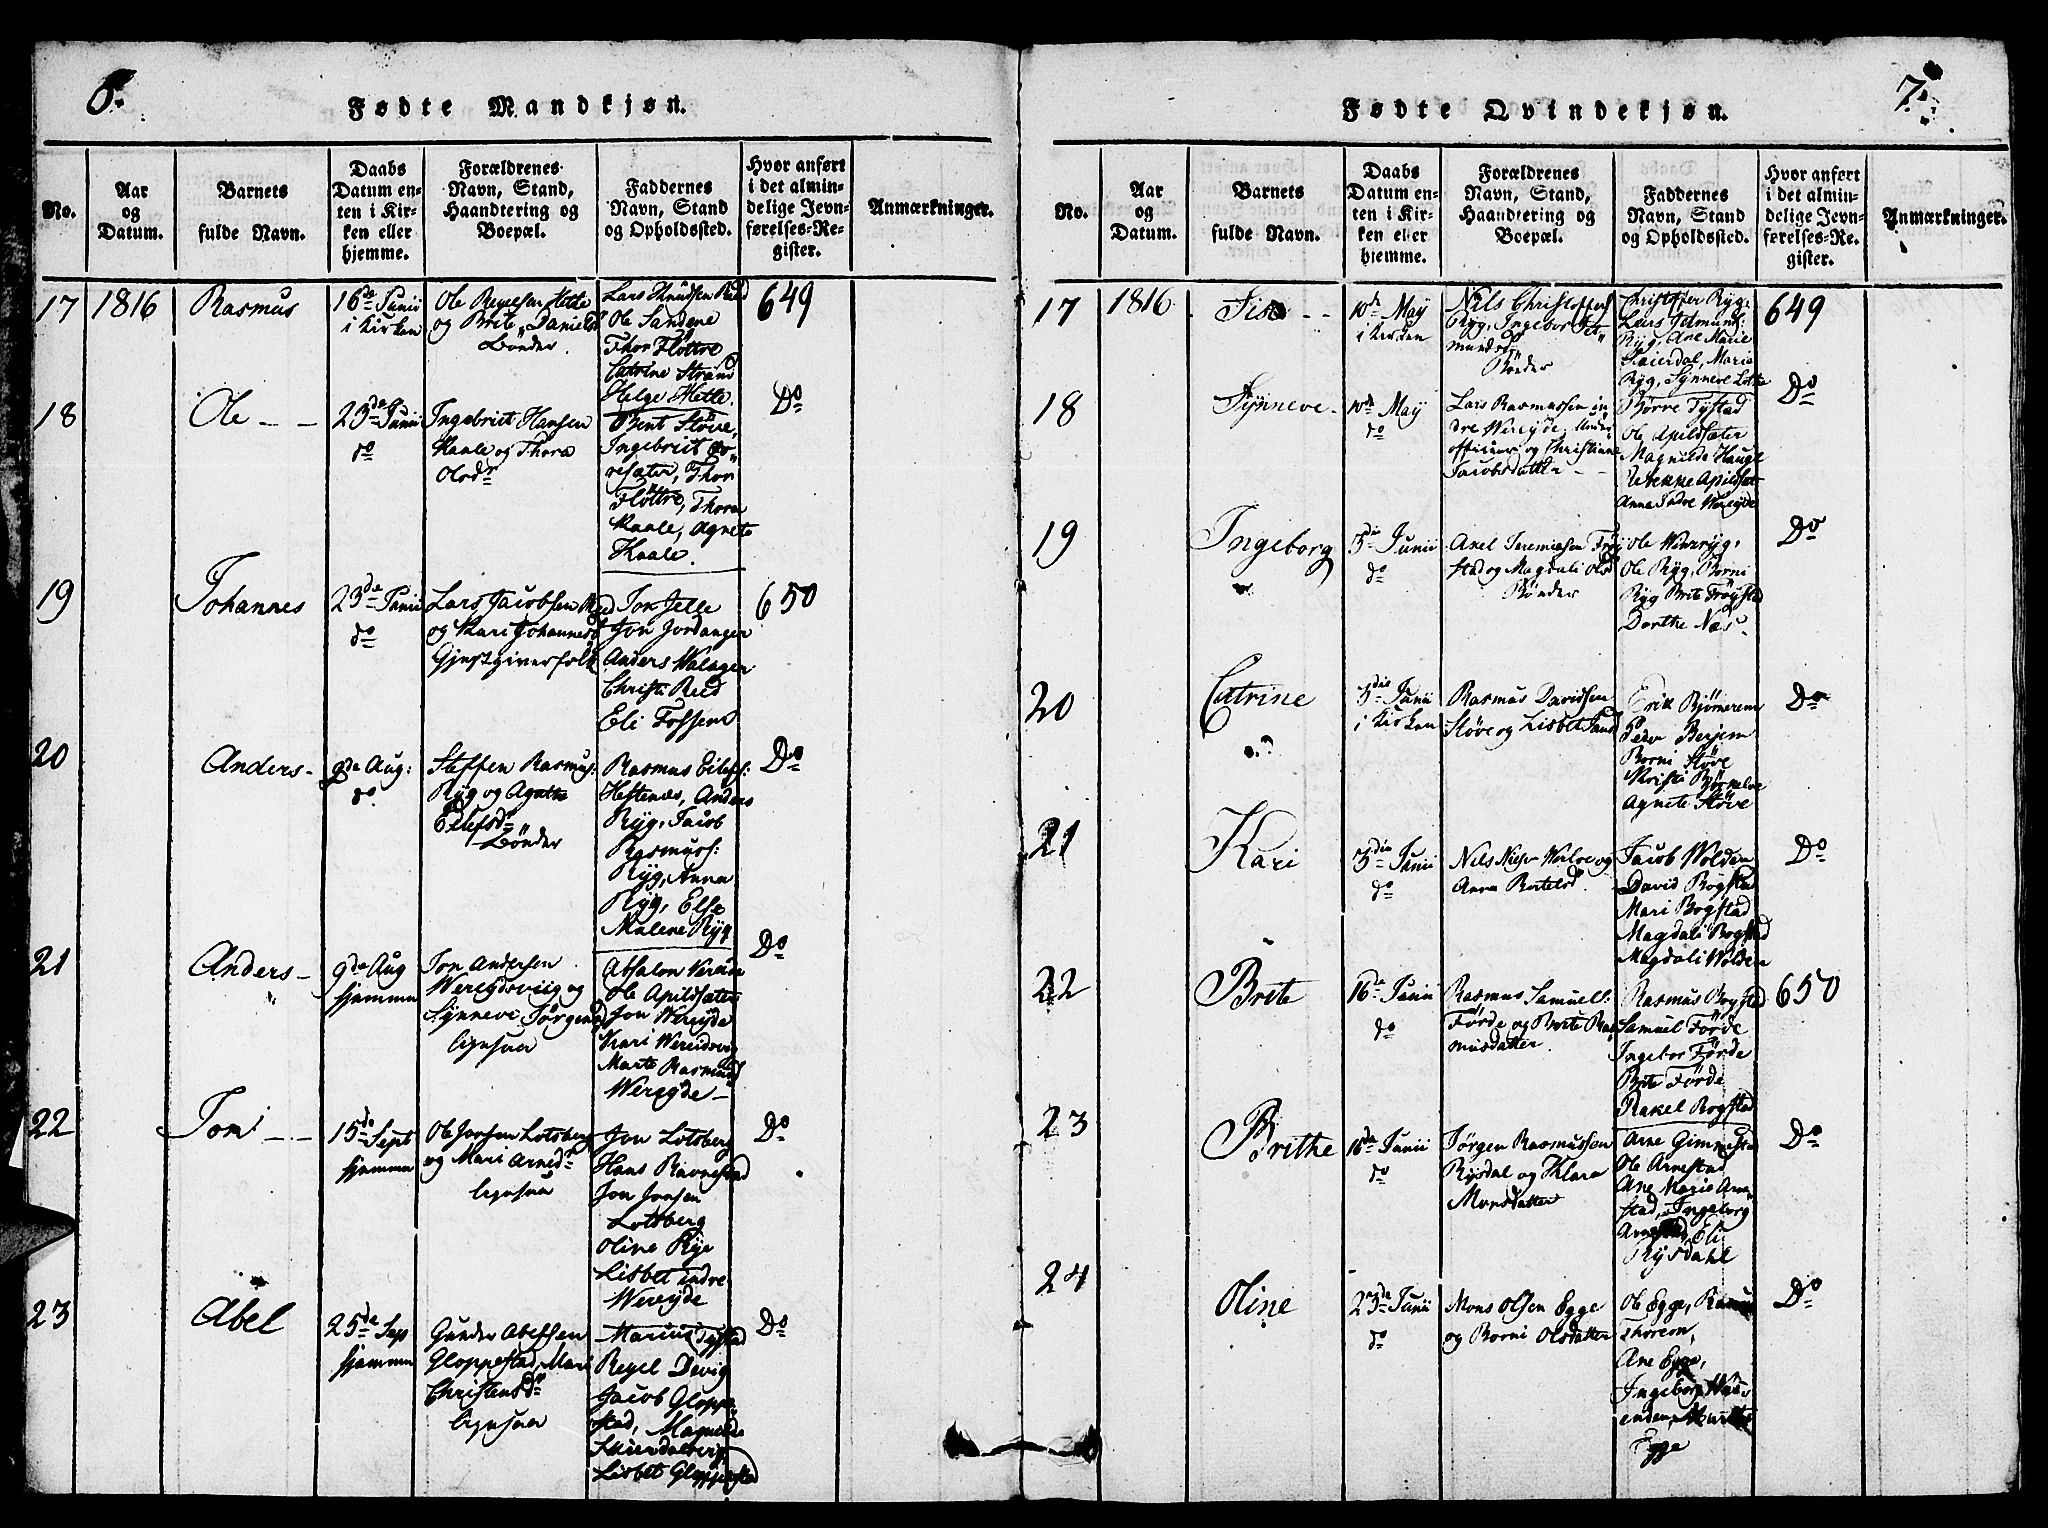 6.
Fødte Mandkjøn.
No.
Aar
og
Datum.
Barnets
fulde Navn.
Daabs
Datum en-
ten i Kir-
ken eller
hjemme.
Forældrenes
Navn, Stand,
Haandtering og
Boepæl.
Faddernes
Navn, Stand
og Opholdssted.
Hvor anført
i det almin-
delige Jevn-
førelses-Re-
gister.
Anmærkninger.
17
1816
Rasmus
16de Junii
i Kirken
Ole Hette
og Brite Daniels
Bönder.
Lars Knudsen Reed
Ole Sandene
Thor Flöttre
Catrine Strand
Helge Hette.
649
18
Ole - -
23de Junii
do
Ingebrict Hansen
Kaale og Thora
Olsdr
Bent Stöve,
Ingebrict
sæter, Thor
Flöttre, Thora
Kaale, Agnete
Kaale.
Do
19
Johannes
23de Junii
do
Lars Jacobsen Reed
og Kari Johannesd
Gjestgiverfolk
Jon Jelle
Jon Jordanger
Anders
Christi Reed
Eli Fossem
650
20
Anders -
9de Aug:
do
Steffen Rasmus:
Ryg og Agathe
Eilefsdr
Bönder
Rasmus Eilefs:
Hestenæs, Anders
Ryg, Jacob
Rasmus:
Ryg, Anna
Ryg, Else
Malene Ryg
Do
21
Anders -
9de Aug
hjemme
Jon Andersen
Wereidsviig og
Synneve Jörgensd
Absalon Vereide
Ole Apildsæter
Jon Wereyde
Kari Wereidsvig
Marte Rasmusd
Wereyde -
Do
22
Jon - -
15de Sept
hjemme
Ole Jonsen Lotsberg
og Mari Arnedr
Jon Lotsberg
Hans Ravnestad
Jon Jonsen
Lotsberg
Oline Rye
Lisbet indre
Wereyde
Do
23
Abel
25de Sep
hjemme
Gunder Abelsen
Gloppestad, Mari
Christensdr
Marius Tystad
Devig
Jacob Gloppe-
stad, Magnilde
Skierdalberg
Lisbet Gloppestad
Do
7.
Fødte Qvindekjøn.
No.
Aar
og
Datum.
Barnets
fulde Navn.
Daabs
Datum en-
ten i Kir-
ken eller
hjemme.
Forældrenes
Navn, Stand,
Haandtering og
Boepæl.
Faddernes
Navn, Stand
og Opholdssted.
Hvor anført
i det almin-
delige Jevn-
førelses-Re-
gister.
Anmærkninger.
17
1816
10de May
i Kirken
Nils Christoffers
Ryg, Ingebor Jet-
mundsdr
Bönder
Christoffer Ryg,
Lars Jetmunds:
Ryg, Ane Marie
Skierdal, Marie
Ryg, Synneve Lothe
649
18
Synneve -
10de May
do
Lars Rasmussen in
dre Wereyde, Under
officeer og Christiane
Jacobsdatter - -
Börre Tystad
Ole Apildsæter
Magnilde Hauge
Rebekke Apildsæt
Anna Indre Wereyde
Do
19
Ingeborg
5die Junii
do
Axel Jeremiesen Fröy
stad og Magdali Olsd
Bönder
Ole
Ole Ryg, Borni
Ryg Brite Fröystad
Dorthe Næs -
Do
20
Catrine
5die Junii
i Kirken
Rasmus Davidsen
Stöve og Lisbet
Erik Bjørnerem
Peder Berjem
Borni Stöve
Kristi
Agnete Stöve
Do
21
Kari
5die Junii
do
Nils Nielsen og
Anna Bertelsd
Jacob Wolden
David Bogstad
Mari Bogstad
Magdali Bogstad
Magdali Wolden
Do
22
Brite
16de Junii
do
Rasmus Samuels:
Förde og Berte Ras
musdatter.
Rasmus Bogstad
Samuel Förde
Ingebor Förde
Brite Förde
Rakel Bogstad
650
23
Brithe
16de Junii
do
Jörgen Rasmussen
Rysdal og Klara
Monsdatter
Arne Gimmestad
Ole Arnestad
Ane Marie Arne-
stad, Ingeborg
Arnestad, Eli
Rysdahl
Do
24
Oline
23de Junii
do
Mons Olsen Egge
og Borni Olsdatter
Ole Egge, Rasmus
Ane Egge,
Ingeborg
enden, Marthe
Egge
Do